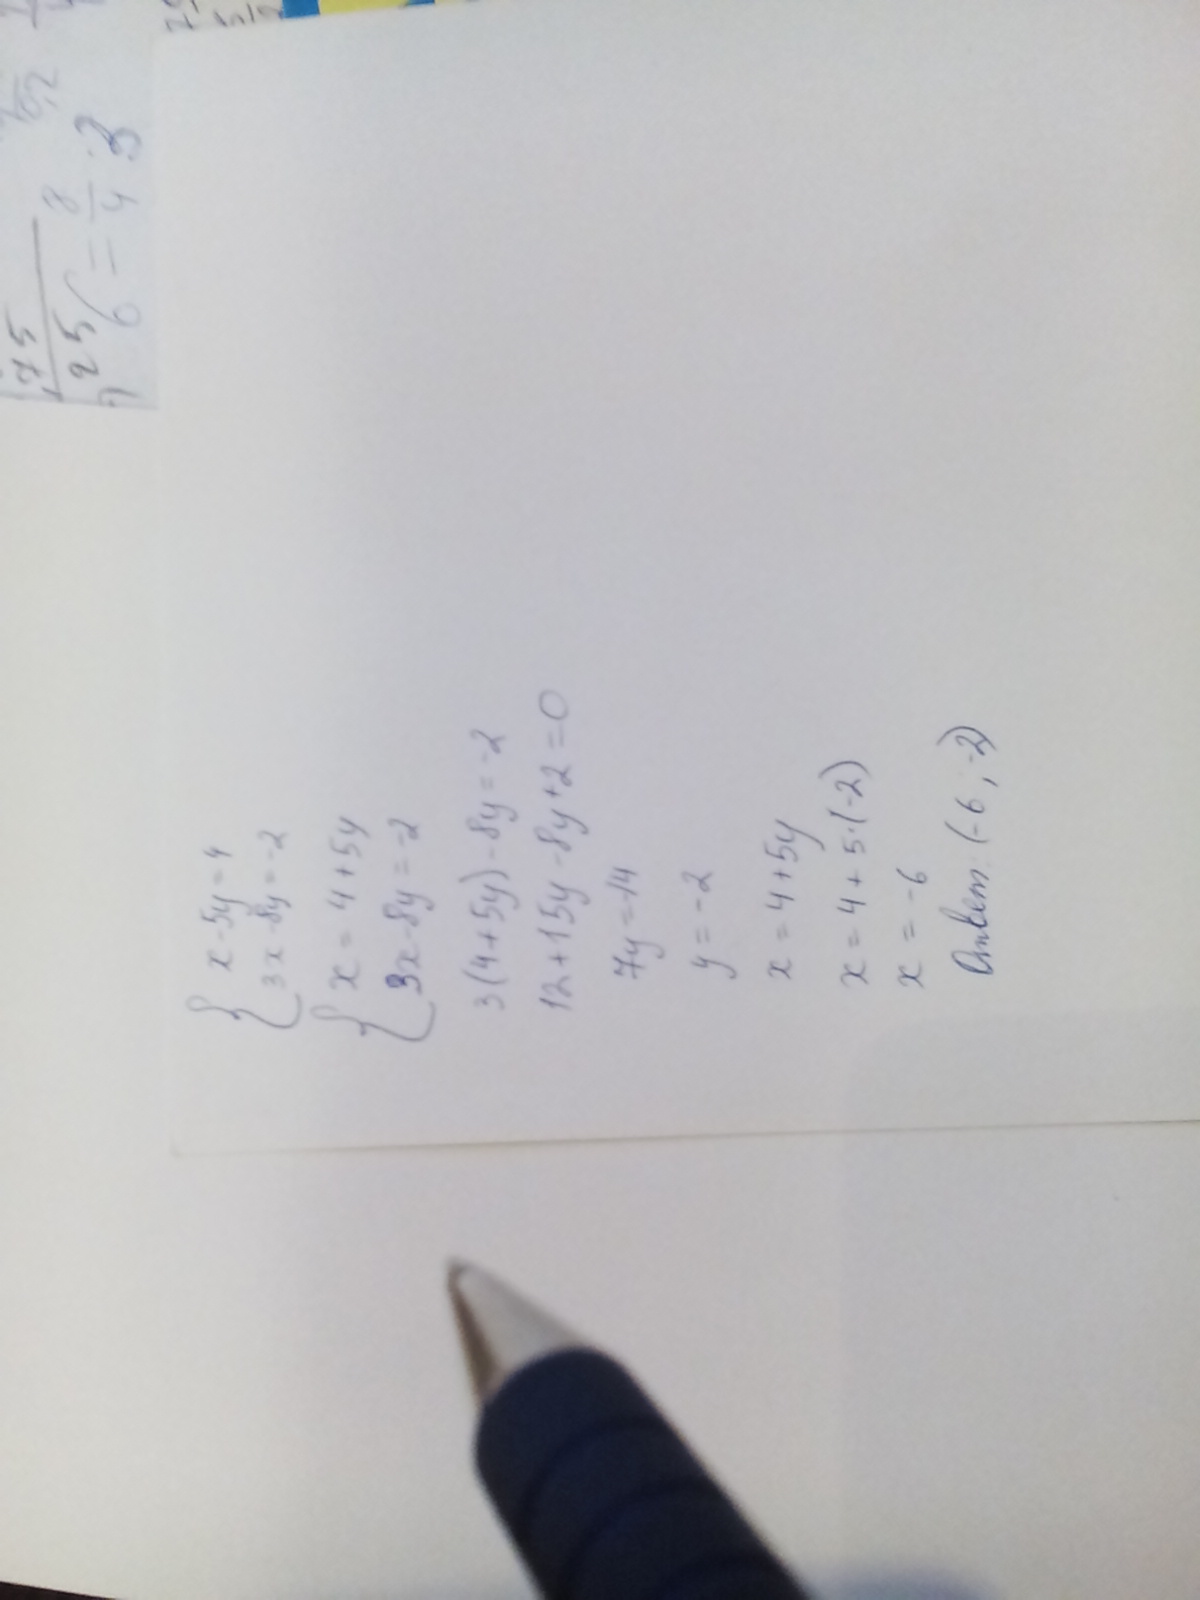 x-5y=4
3x-8y=-2
x=4+5y
3x-8y=-2
3(4+5y)-8y=-2
12+15y-8y+2=0
7y=-14
y=-2
x=4+5y
x=4+5·(-2)
x=-6
Ответ: (-6, -2)
75
25
6 = 8/4 · 3